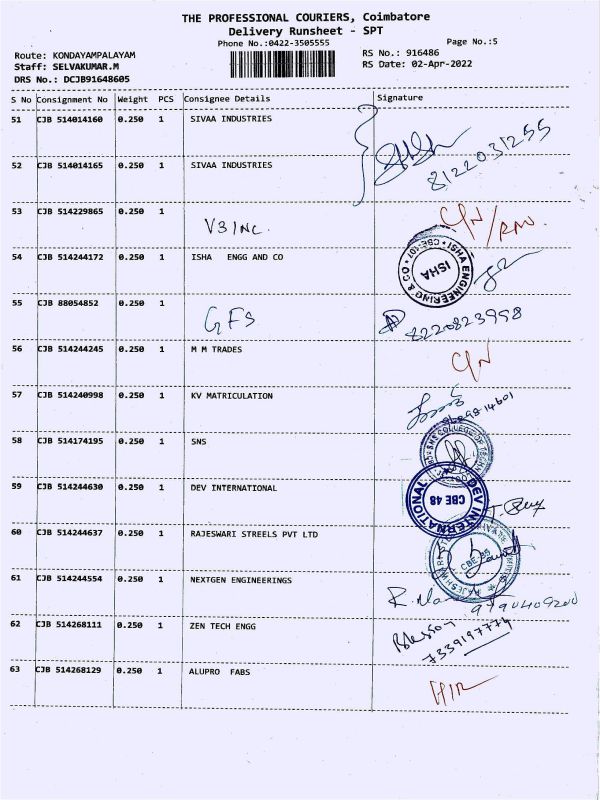 THE PROFESSIONAL COURIERS, Coimbatore
Delivery Runsheet - SPT
Phone No.:0422-3505555
Page No.:5
Route: KONDAYAMPALAYAM
RS No.: 916486
Staff: SELVAKUMAR.M
RS Date: 02-Apr-2022
DRS No.: DCJB91648605
S No Consignment No Weight PCS Consignee Details Signature
51 CJB 514014160 0.250 1 SIVAA INDUSTRIES
8122031255
52 CJB 514014165 0.250 1 SIVAA INDUSTRIES
53 CJB 514229865 0.250 1 V3 INC. C/N
54 CJB 514244172 0.250 1 ISHA ENGG AND CO
ISHA ENGINEERING & CO
ISHA
55 CJB 88054852 0.250 1 GFS 8220823998
56 CJB 514244245 0.250 1 M M TRADES C/N
57 CJB 514240998 0.250 1 KV MATRICULATION
58 CJB 514174195 0.250 1 SNS
59 CJB 514244630 0.250 1 DEV INTERNATIONAL
DEV INTERNATIONAL
CBE 48
60 CJB 514244637 0.250 1 RAJESWARI STREELS PVT LTD
61 CJB 514244554 0.250 1 NEXTGEN ENGINEERINGS
9790409200
62 CJB 514268111 0.250 1 ZEN TECH ENGG
7339197774
63 CJB 514268129 0.250 1 ALUPRO FABS